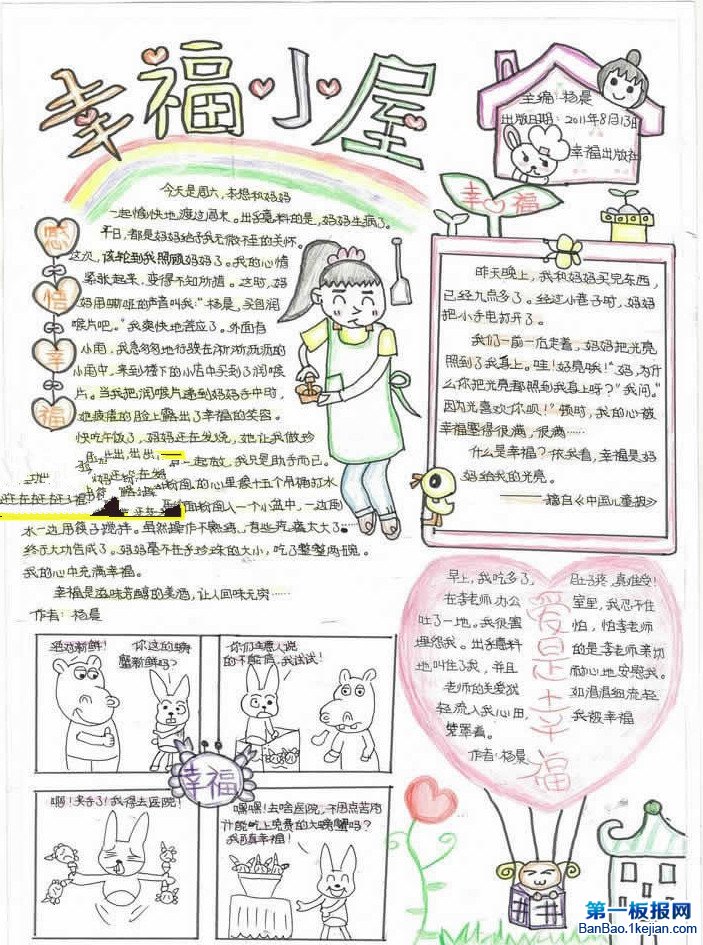 幸福小屋
主编：杨晨
出版日期：2011年8月13日
幸福出版社
感悟幸福
今天是周六，本想和妈妈
一起愉快地渡过周末。出乎意料的是，妈妈生病了。
平日，都是妈妈给予我无微不至的关怀。
这次，该轮到我照顾妈妈了。我的心情
紧张起来，变得不知所措。这时，妈
妈用嘶哑的声音叫我："杨晨，买包润
喉片吧。"我爽快地答应了。外面有
小雨，我急匆匆地行驶在淅淅沥沥的
小雨中，来到楼下的小店中买到了润喉
片。当我把润喉片递到妈妈手中时，
她疲惫的脸上露出了幸福的笑容。
快吃午饭了，妈妈还在发烧，她让我做珍
一起做，我只是助手而已。
的心里像十五个吊桶打水
面粉倒入一个小盆中，一边倒
水一边用筷子搅拌。虽然操作不熟练，有些疙瘩太大了……
终于大功告成了。妈妈毫不在乎珍珠的大小，吃了整整两碗。
我的心中充满幸福。
幸福是滋味芳醇的美酒，让人回味无穷……
作者：杨晨
幸福
昨天晚上，我和妈妈买完东西，
已经九点多了。经过小巷子时，妈妈
把小手电打开了。
我们一前一后走着，妈妈把光亮
照到了我身上。哇！好亮哦！"妈，为什
么你把光亮都照到我身上呀？"我问。
因为光喜欢你呗！"顿时，我的心被
幸福塞得很满，很满……
什么是幸福？依我看，幸福是妈
妈给我的光亮。
——摘自《中国儿童报》
爱是幸福
早上，我吃多了，肚子疼，真难受！
在李老师办公室里，我忍不住
吐了一地。我很害怕，怕李老师
埋怨我。出乎意料的是李老师亲切
地叫住了我，并且耐心地安慰我。
老师的关爱犹如涓涓细流轻
轻流入我心田，我被幸福
笼罩着。
作者：杨晨
绝对新鲜！
你这的螃
蟹新鲜吗？
你们生意人说
的不能信，我试试！
幸福
啊！夹手了！我得去医院！
嘿嘿！去啥医院，不用点苦肉
计能吃上免费的大螃蟹吗？
我可真幸福！
第一板报网
BanBao.1kejian.com